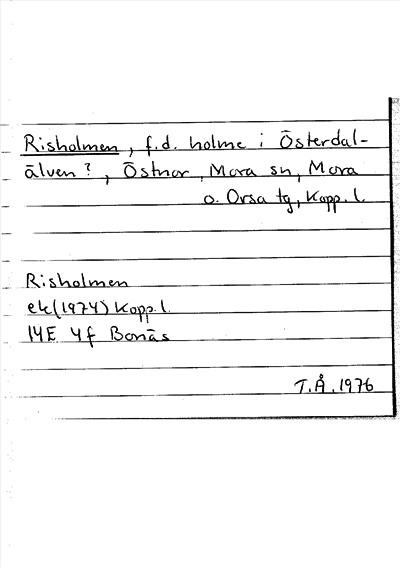 Risholmen, f.d. holme i Österdal-
älven?, Östnor, Mora sn, Mora
o. Orsa tg, Kopp. l.
Risholmen
ek(1974) Kopp. l.
14E 4f Bonäs
T.Å. 1976